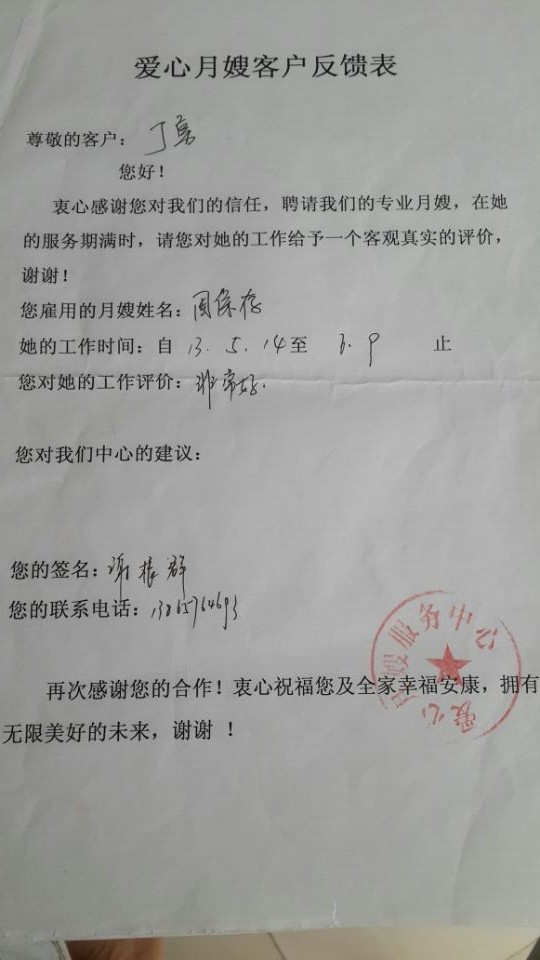 爱心月嫂客户反馈表
尊敬的客户：丁亮
您好！
衷心感谢您对我们的信任，聘请我们的专业月嫂，在她
的服务期满时，请您对她的工作给予一个客观真实的评价，
谢谢！
您雇用的月嫂姓名：周保存
她的工作时间：自 13.5.14至 6.9 止
您对她的工作评价：非常好.
您对我们中心的建议：
您的签名：谢振群
您的联系电话：13865764693
爱心月嫂服务中心
再次感谢您的合作！衷心祝福您及全家幸福安康，拥有
无限美好的未来，谢谢 ！